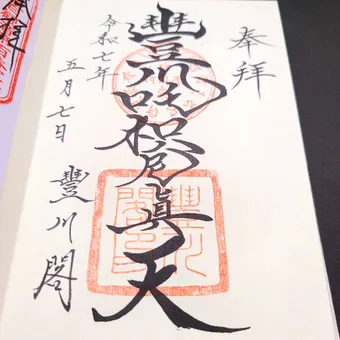 奉拝
豊川吒枳尼眞天
令和七年
五月七日
豐川閣